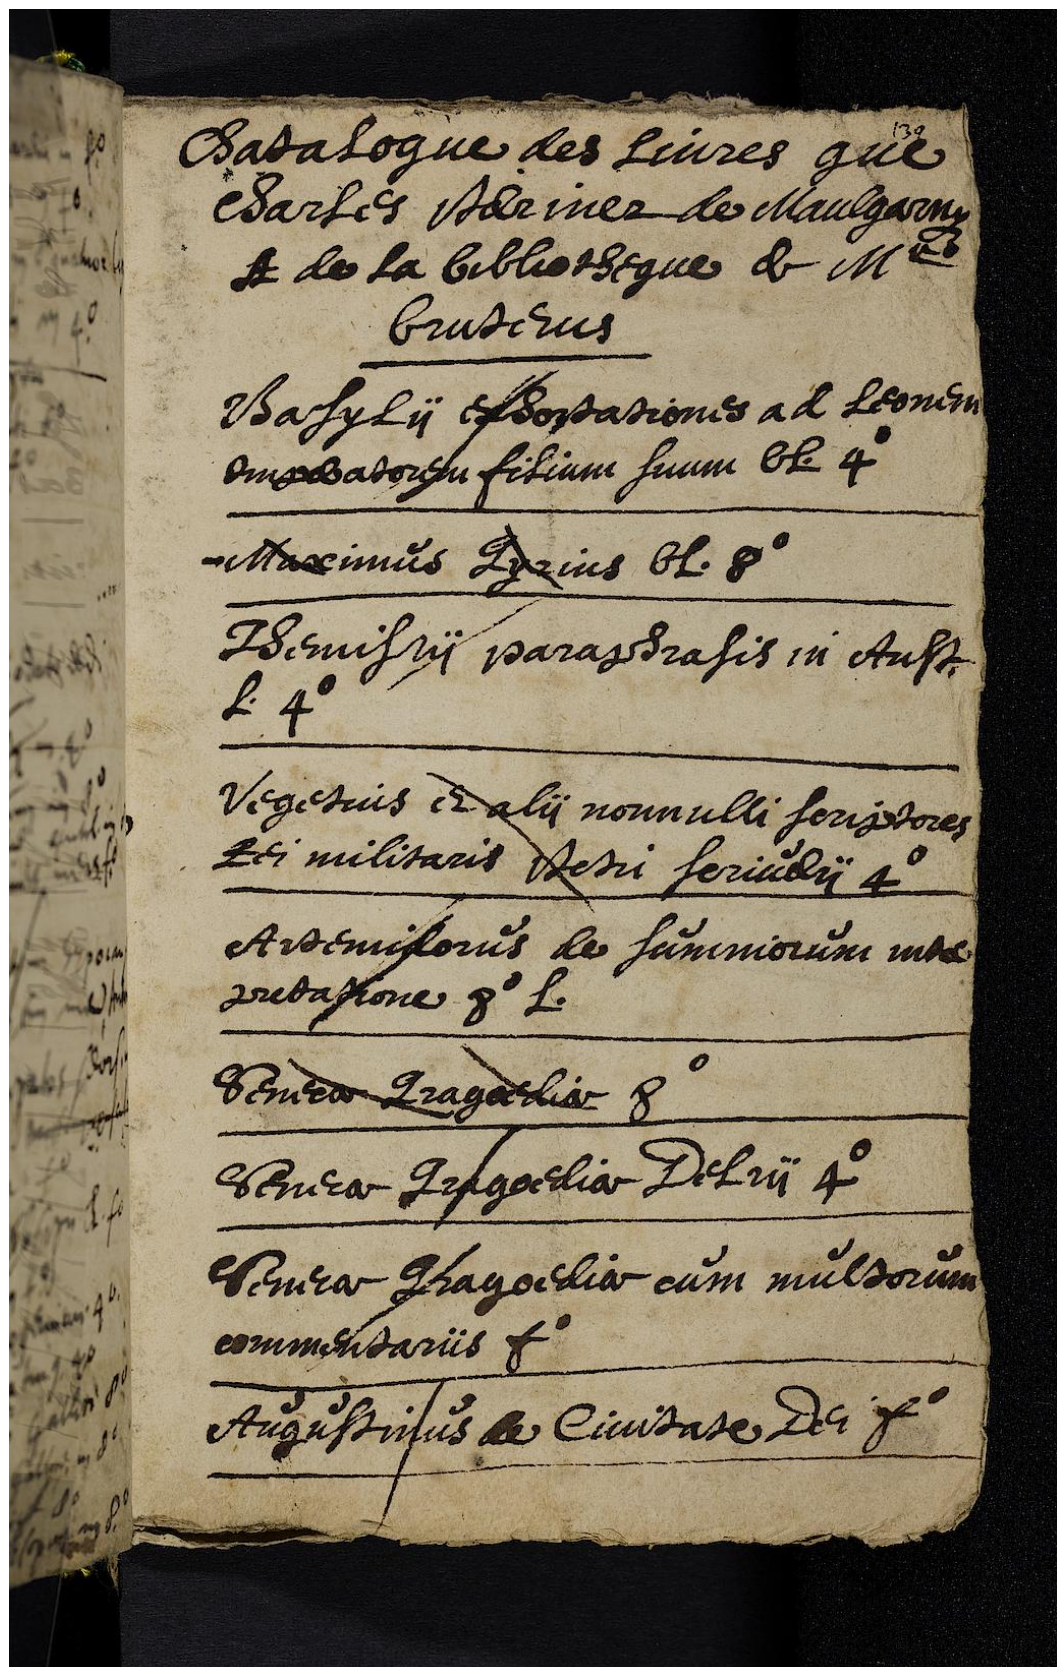 139
Chatalogue des Liures que
Charles de Maulgarny
A de La bibliotheque de M
bruterus
Basylii exhortationes ad Leonem
Imperatorem filium suum GL. 4º
Maximus Tyrius GL. 8º
Themistii paraphrasis in Arist.
L. 4º
Vegetius et alii nonnulli scriptores
Rei militaris Petri scriverii 4º
Artemidorus de sumniorum inter
pretatione 8º L.
Seneca Tragoedia 8º
Seneca Tragoedia Delrii 4º
Seneca Tragoedia cum multorum
commentariis fº
Augustinus de Ciuitate Dei fº